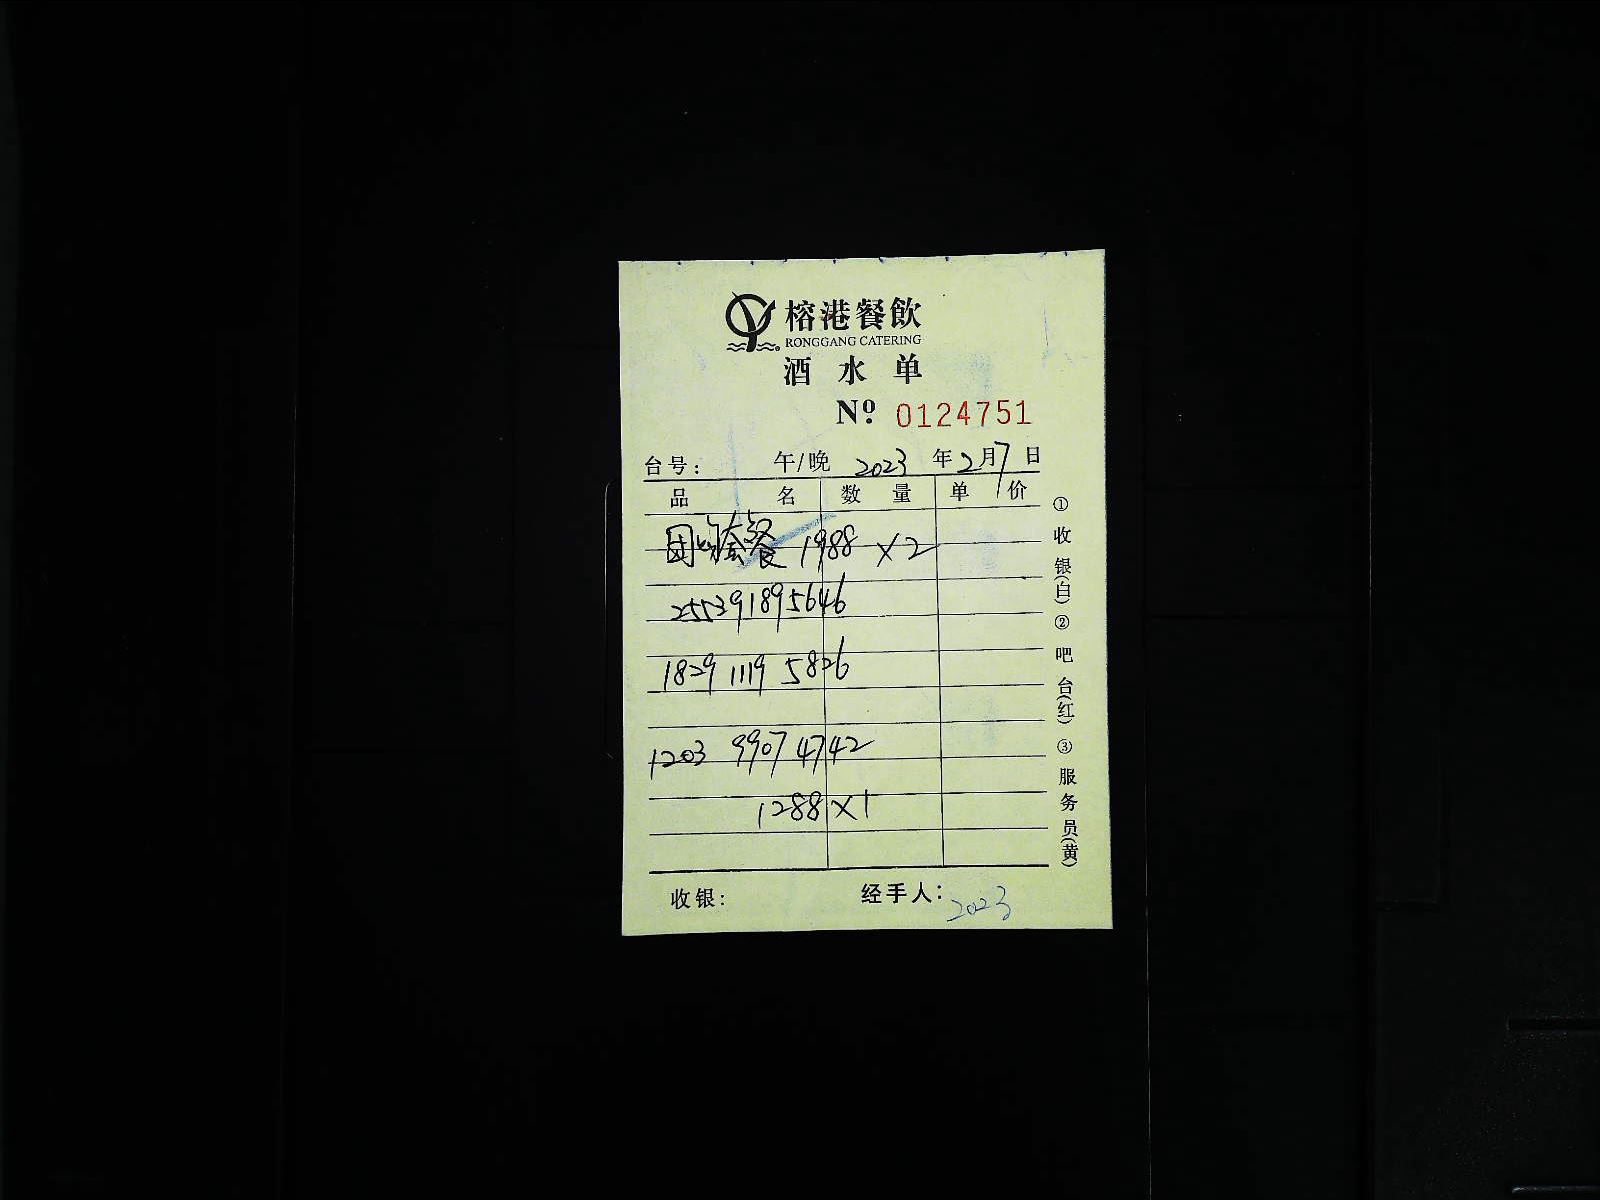 榕港餐飲
RONGGANG CATERING
酒水单
Nº 0124751
台号: 午/晚 2023 年 2 月 7 日
品 名 数 量 单 价
团购套餐 1988 ×2
255391895646
1829 1119 5826
1203 9907 4742
1288 ×1
收银: 经手人: 2023
①收银(白)②吧台(红)③服务员(黄)